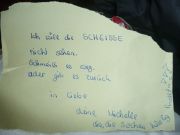 Ich will die SCHEISSE
nicht sehen.
Schmeiß es weg.
oder gib es zurück
in Liebe
deine Michelle
die, die Sachen